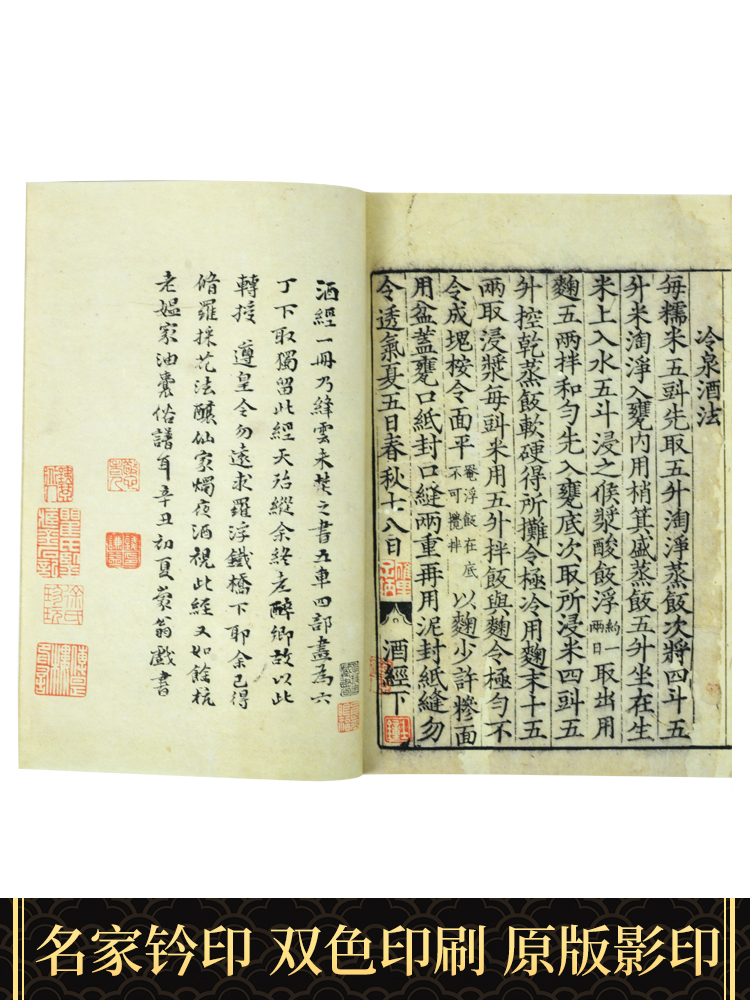 冷泉酒法
每糯米五㪷先取五升淘淨蒸飯次將四斗五
升米淘淨入甕內用梢箕盛蒸飯五升坐在生
米上入水五斗浸之候漿酸飯浮約一兩日取出用
麴五兩拌和勻先入甕底次取所浸米四㪷五
升控乾蒸飯軟硬得所攤令極冷用麴末十五
兩取浸漿每㪷米用五升拌飯與麴令極勻不
令成塊桉令面平罨浮飯在底不可攪拌以麴少許糝面
用盆蓋甕口紙封口縫兩重再用泥封紙縫勿
令透氣夏五日春秋十八日
酒經下
酒經一冊乃絳雲未焚之書五車四部盡為六
丁下取獨留此經天殆縱余終老醉鄉故以此
轉授 遵皇令勿遠求羅浮鐵橋下耶余已得
脩羅採花法釀仙家燭夜酒視此經又如餘杭
老媼家油囊俗譜耳辛丑初夏蒙翁戲書
名家钤印 双色印刷 原版影印